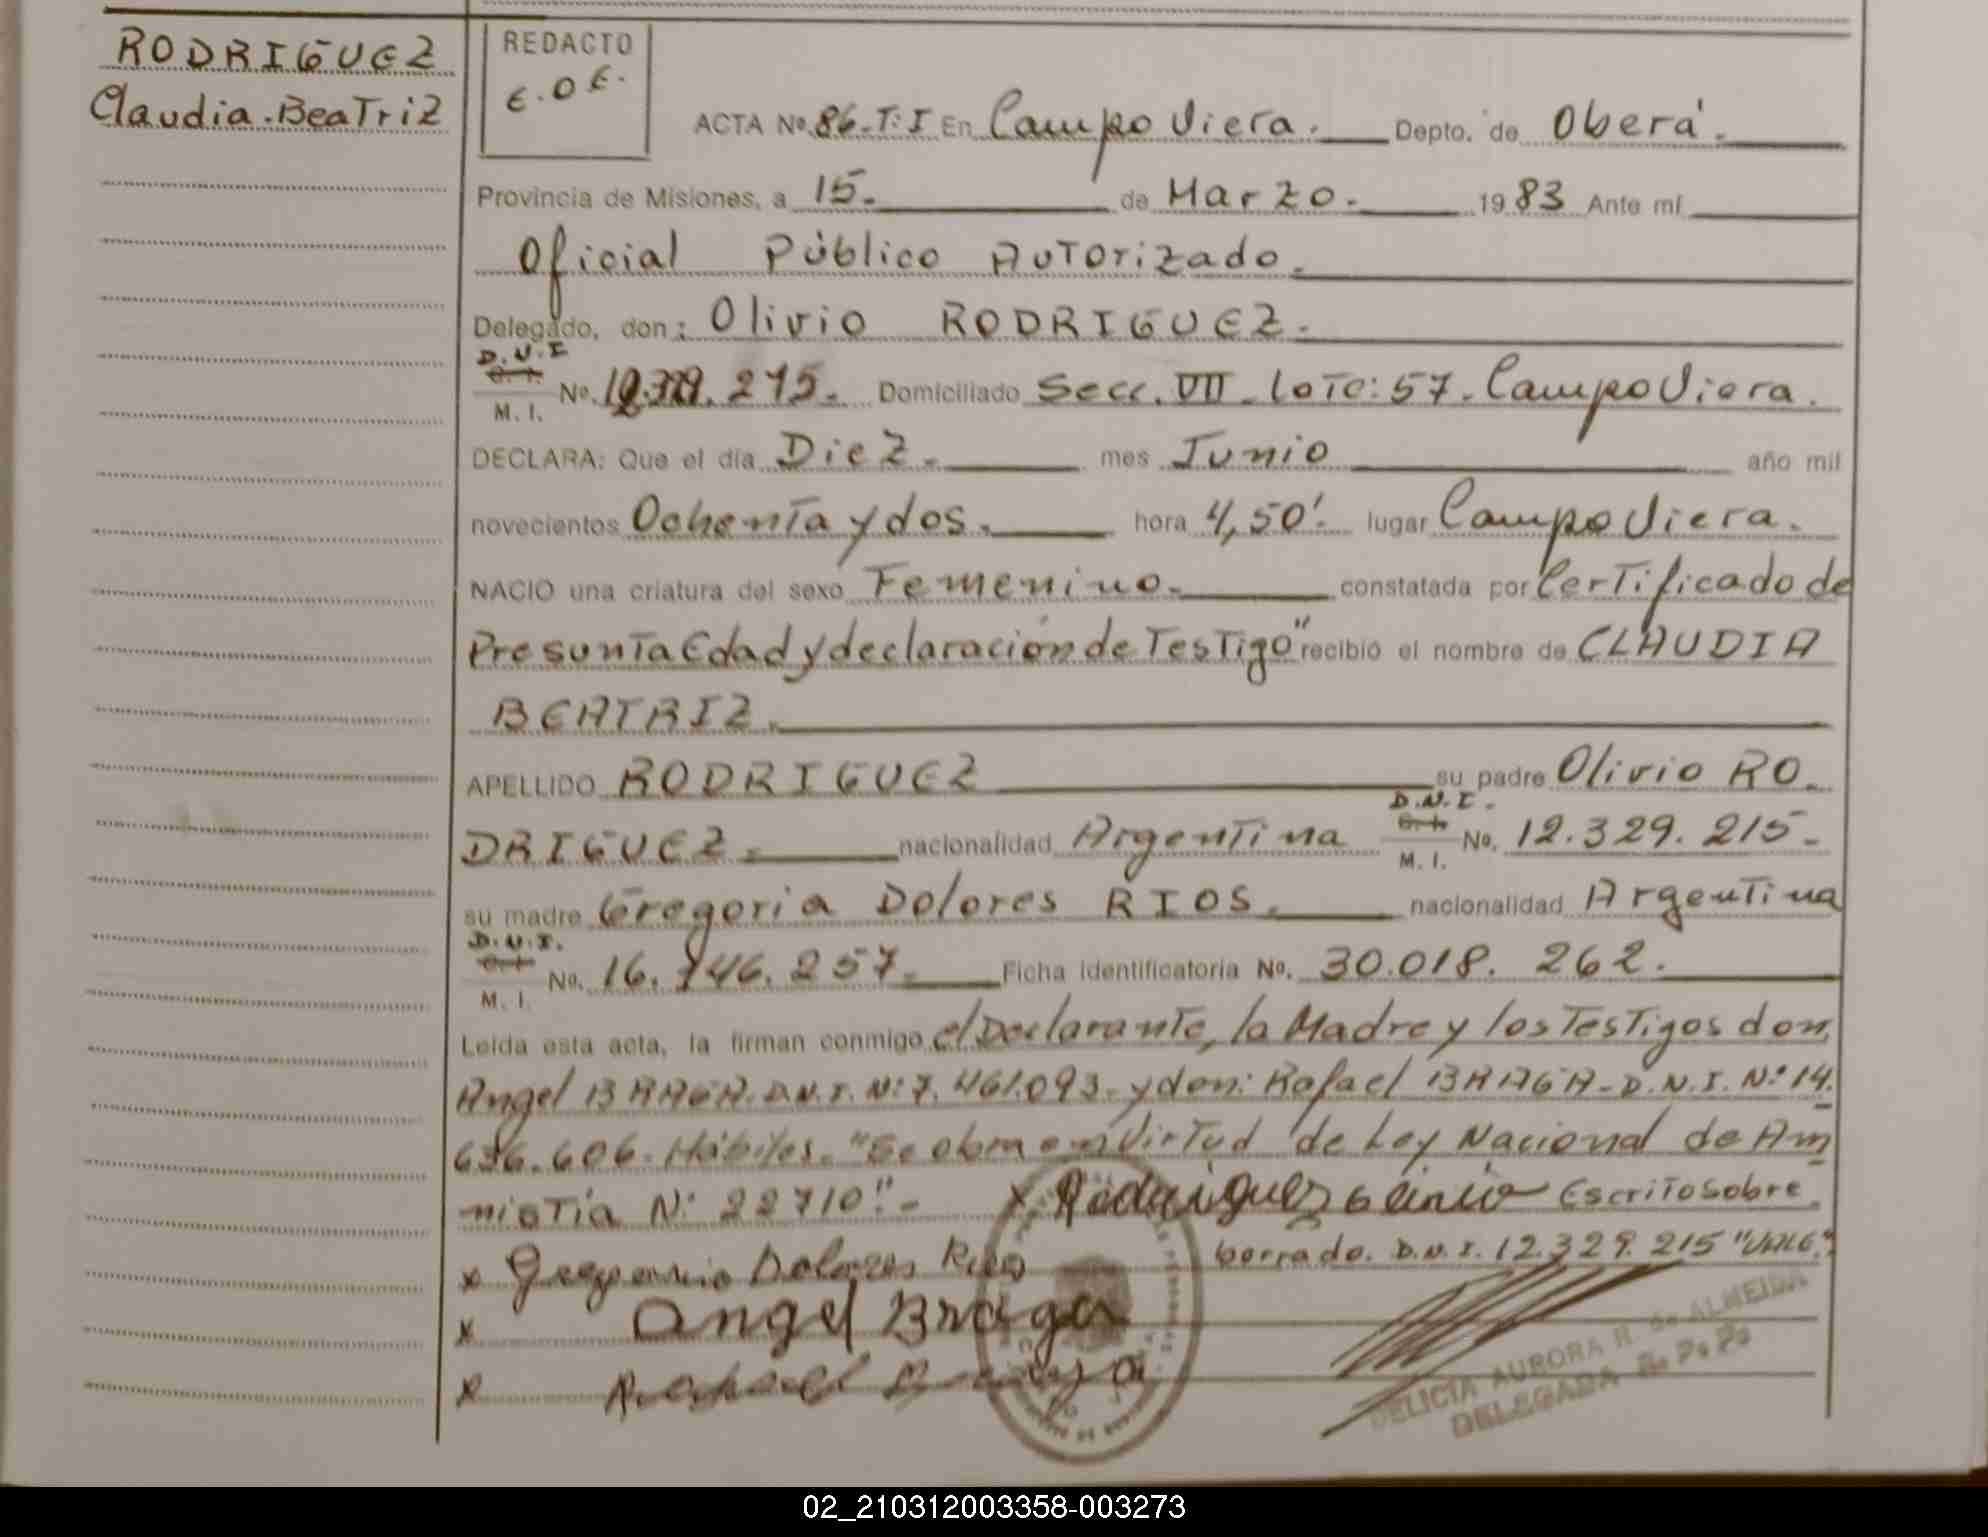 RODRIGUEZ
Claudia.Beatriz
REDACTO
E.O.E.
ACTA Nº 86-T:I En Campo Viera. Depto. de Oberá.
Provincia de Misiones, a 15. de Marzo. 1983 Ante mí
Oficial Público Autorizado.
Delegado, don: Olivio RODRIGUEZ.
D.N.I
C. I.
M. I.
Nº. 12.329.215. Domiciliado Secc. VII. Lote: 57. Campo Viera.
DECLARA: Que el día Diez. mes Junio año mil
novecientos Ochenta y dos. hora 4,50'. lugar Campo Viera.
NACIO una criatura del sexo Femenino. constatada por Certificado de
Presunta Edad y declaración de Testigo" recibió el nombre de CLAUDIA
BEATRIZ.
APELLIDO RODRIGUEZ su padre Olivio RO.
D.N.I.
C. I.
M. I.
DRIGUEZ. nacionalidad Argentina Nº. 12.329.215.
su madre Gregoria Dolores RIOS. nacionalidad Argentina
D.N.I.
C. I.
M. I.
Nº. 16.746.257. Ficha identificatoria Nº. 30.018.262.
Leída esta acta, la firman conmigo el Declarante, la Madre y los Testigos don,
Angel BRAGA. D.N.I. Nº: 7.461.093. y don: Rafael BRAGA. D.N.I. Nº 14.
636.606. Hábiles. "Se obra en Virtud de Ley Nacional de Am
nistía Nº 22710".- x Rodriguez Escrito sobre
borrado. D.N.I. 12.329.215 "VALE".
x Gregoria Dolores Rios
x Angel Braga
x Rafael Braga
DELICIA AURORA R. de ALMEIDA
DELEGADA R. P. P.
02_210312003358-003273